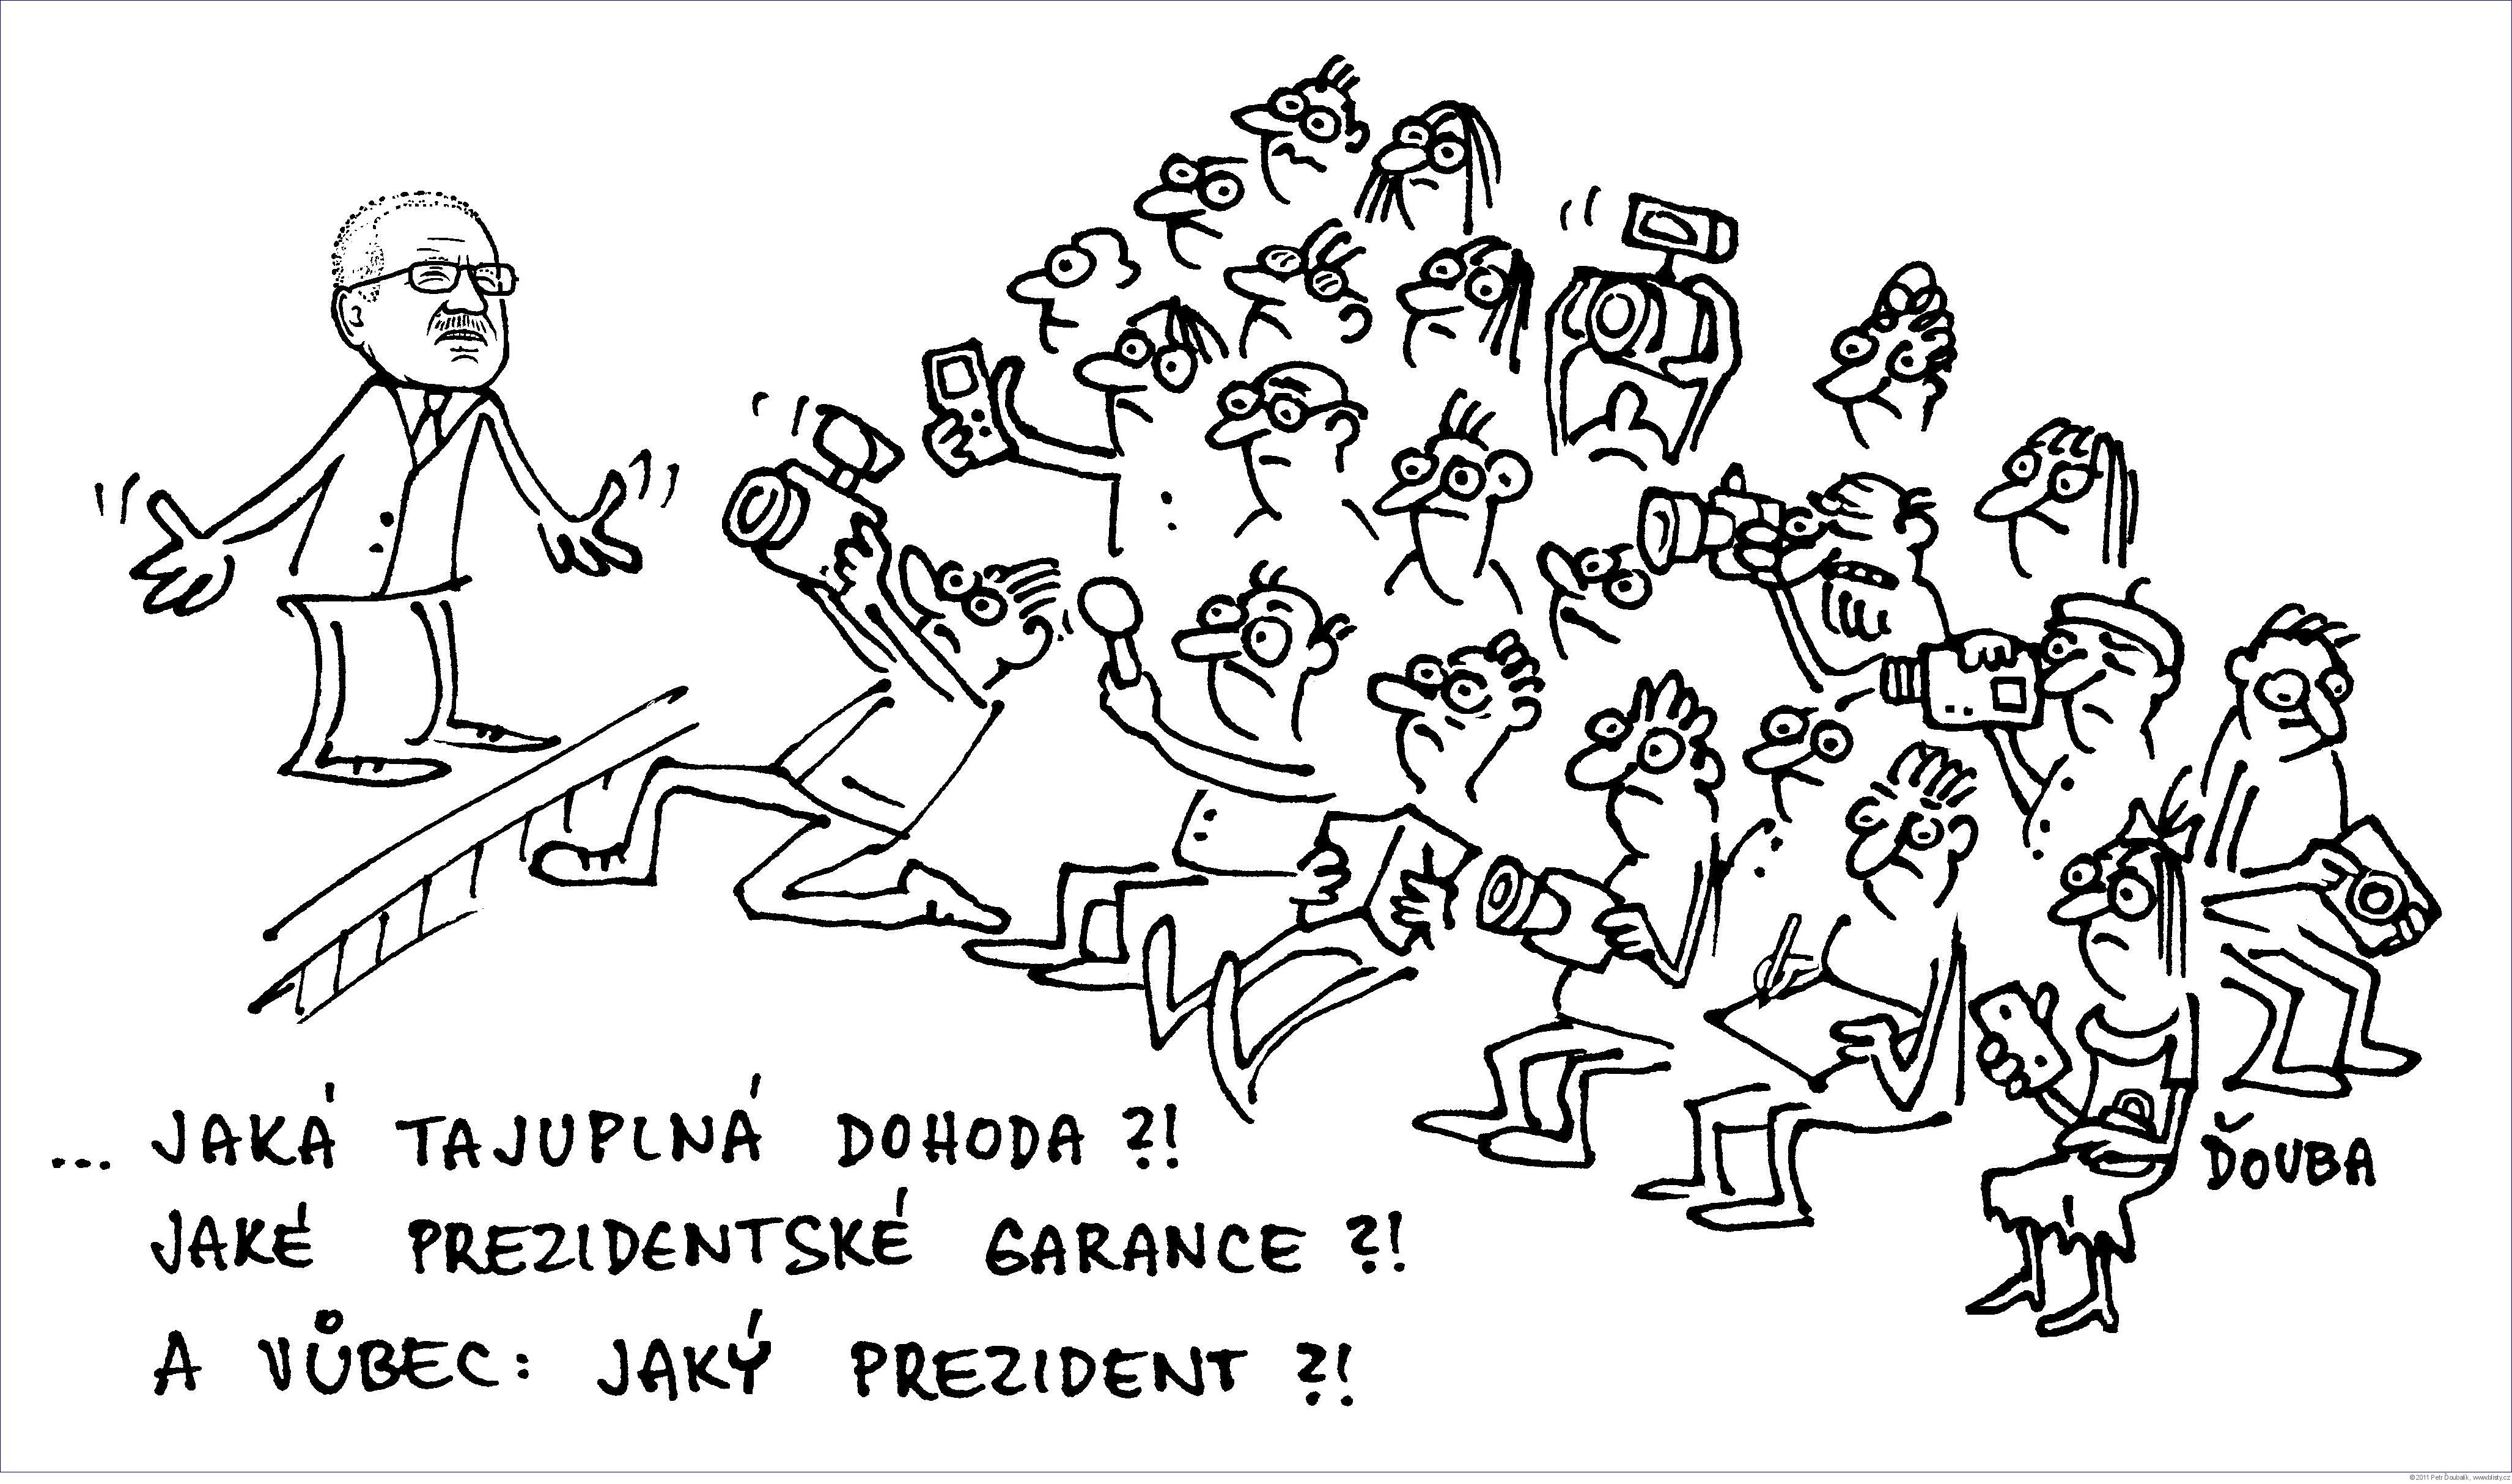 ... JAKÁ TAJUPLNÁ DOHODA ?!
JAKÉ PREZIDENTSKÉ GARANCE ?!
A VŮBEC: JAKÝ PREZIDENT ?!
ĎOUBA
© 2011 Petr Ďoubalík, www.blisty.cz